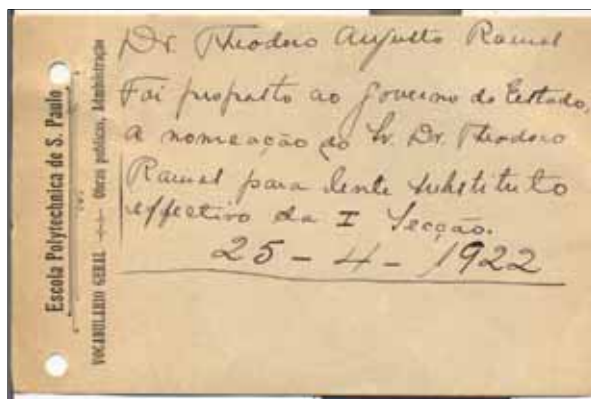 Escola Polytechnica de S. Paulo
VOCABULARIO GERAL — Obras publicas, Administração
Dr. Theodoro Augusto Ramos
Foi proposto ao Governo do Estado,
a nomeação do Sr. Dr. Theodoro
Ramos para lente substituto
effectivo da I Secção.
25 - 4 - 1922